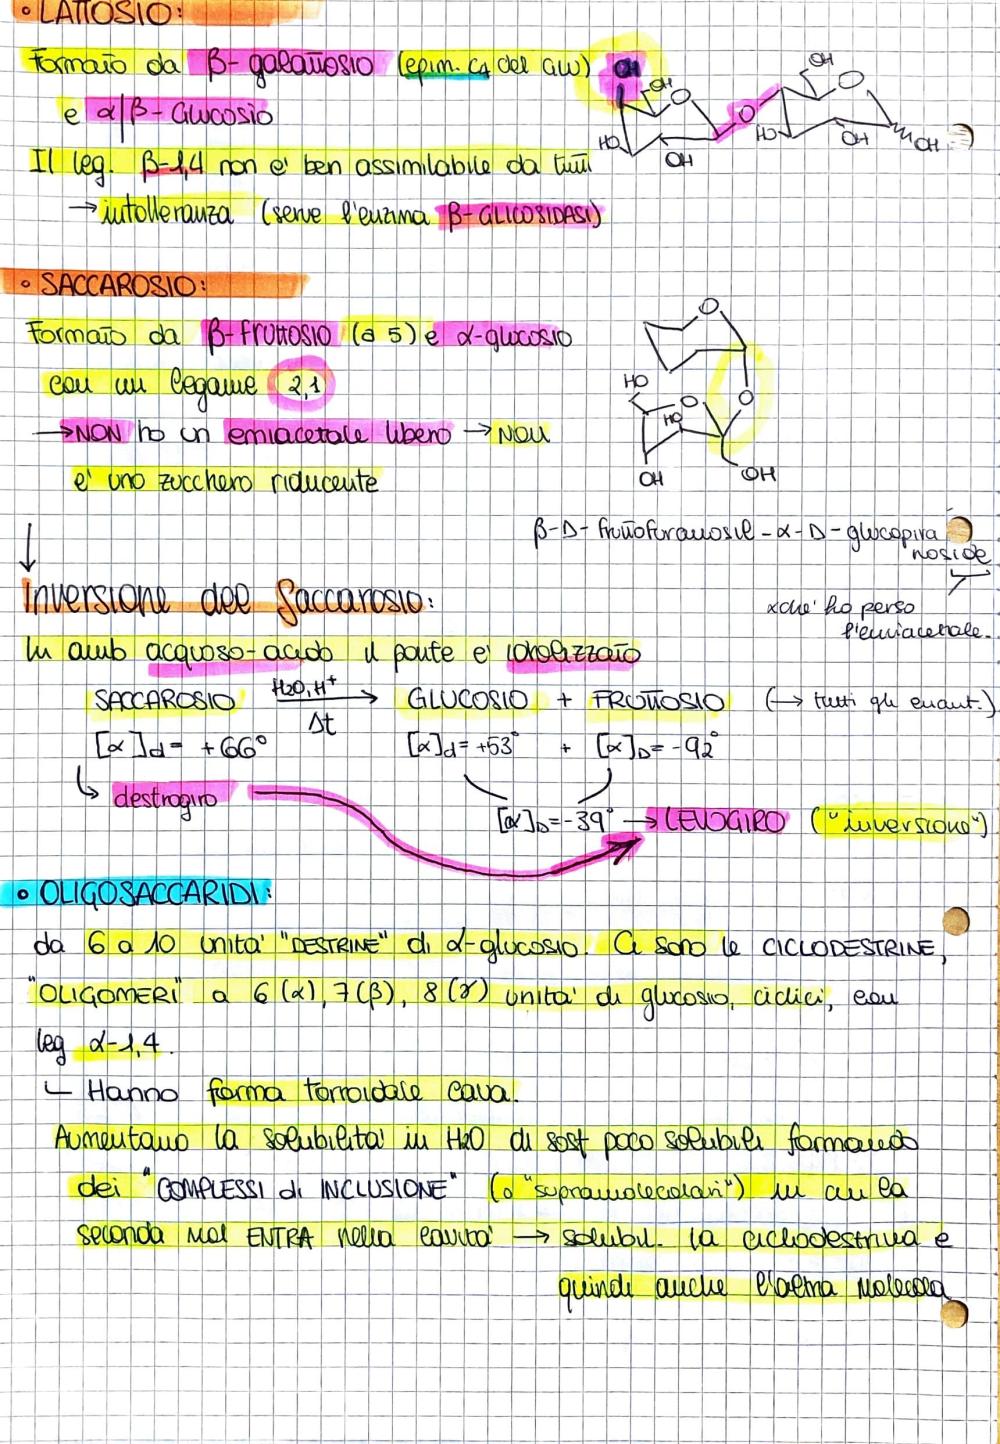 • LATTOSIO:
Formato da β-galattosio (epim. C4 del glu)
e α/β-Glucosio
Il leg. β-1,4 non e' ben assimilabile da tutti
→ intolleranza (serve l'enzima β-GLICOSIDASI)
OH
OH
O
HO
OH
O
OH
O
HO
OH
OH
• SACCAROSIO:
Formato da β-fruttosio (a 5) e α-glucosio
con un legame 2,1
→ NON ho un emiacetale libero → NON
e' uno zucchero riducente
O
O
HO
O
HO
OH
OH
β-D-fruttofuranosil-α-D-glucopira
noside
xche' ho perso
l'emiacetale.
↓
Inversione del Saccarosio:
In amb acquoso-acido il ponte e' idrolizzato
SACCAROSIO H2O, H+ → Δt GLUCOSIO + FRUTTOSIO (→ tutti gli enant.)
[α]d= +66° [α]d= +53° + [α]D= -92°
↳ destrogiro
[α]D=-39° → LEVOGIRO ("inversione")
• OLIGOSACCARIDI:
da 6 a 10 unita' "DESTRINE" di α-glucosio. Ci sono le CICLODESTRINE,
"OLIGOMERI" a 6(α), 7(β), 8(γ) unita' di glucosio, ciclici, con
leg α-1,4.
Hanno forma torroidale cava.
Aumentano la solubilita' in H2O di sost poco solubili formando
dei "COMPLESSI di INCLUSIONE" (o "supramolecolari") in cui la
seconda mol ENTRA nella cavita' → solubil. la ciclodestrina e
quindi anche l'altra molecola